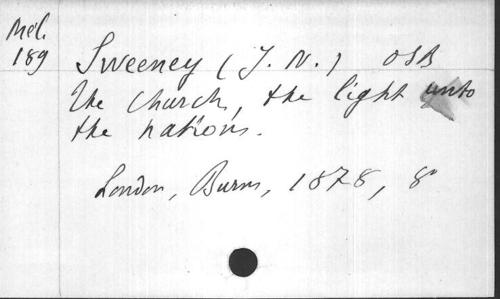 Mél.
189
Sweeney (J. N.) OSB
The Church, the light unto
the nations.
London, Burns, 1878, 8°